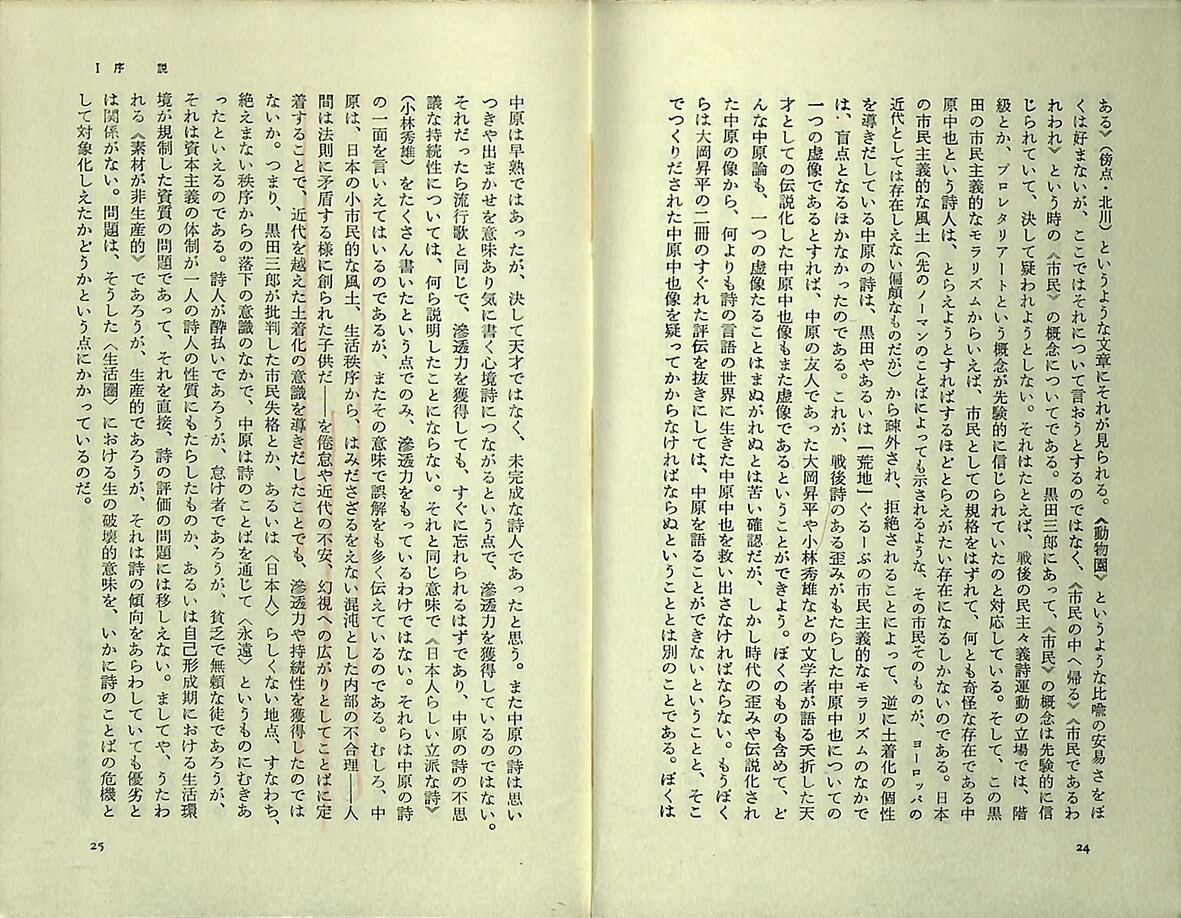 ある》（傍点・北川）というような文章にそれが見られる。《動物園》というような比喩の安易さをぼ
くは好まないが、ここではそれについて言おうとするのではなく、《市民の中へ帰る》《市民であるわ
れわれ》という時の《市民》の概念についてである。黒田三郎にあって、《市民》の概念は先験的に信
じられていて、決して疑われようとしない。それはたとえば、戦後の民主々義詩運動の立場では、階
級とか、プロレタリアートという概念が先験的に信じられていたのと対応している。そして、この黒
田の市民主義的なモラリズムからいえば、市民としての規格をはずれて、何とも奇怪な存在である中
原中也という詩人は、とらえようとすればするほどとらえがたい存在になるしかないのである。日本
の市民主義的な風土（先のノーマンのことばによっても示されるような、その市民そのものが、ヨーロッパの
近代としては存在しえない偏頗なものだが）から疎外され、拒絶されることによって、逆に土着化の個性
を導きだしている中原の詩は、黒田やあるいは「荒地」ぐるーぷの市民主義的なモラリズムのなかで
は、盲点となるほかなかったのである。これが、戦後詩のある歪みがもたらした中原中也についての
一つの虚像であるとすれば、中原の友人であった大岡昇平や小林秀雄などの文学者が語る夭折した天
才としての伝説化した中原中也像もまた虚像であるということができよう。ぼくのものも含めて、ど
んな中原論も、一つの虚像たることはまぬがれぬとは苦い確認だが、しかし時代の歪みや伝説化され
た中原の像から、何よりも詩の言語の世界に生きた中原中也を救い出さなければならない。もうぼく
らは大岡昇平の二冊のすぐれた評伝を抜きにしては、中原を語ることができないということと、そこ
でつくりだされた中原中也像を疑ってからなければならぬということとは別のことである。ぼくは
24
序説 I
中原は早熟ではあったが、決して天才ではなく、未完成な詩人であったと思う。また中原の詩は思い
つきや出まかせを意味あり気に書く心境詩につながるという点で、滲透力を獲得しているのではない。
それだったら流行歌と同じで、滲透力を獲得しても、すぐに忘れられるはずであり、中原の詩の不思
議な持続性については、何ら説明したことにならない。それと同じ意味で《日本人らしい立派な詩》
（小林秀雄）をたくさん書いたという点でのみ、滲透力をもっているわけではない。それらは中原の詩
の一面を言いえてはいるのであるが、またその意味で誤解をも多く伝えているのである。むしろ、中
原は、日本の小市民的な風土、生活秩序から、はみださざるをえない混沌とした内部の不合理――人
間は法則に矛盾する様に創られた子供だ――を倦怠や近代の不安、幻視への広がりとしてことばに定
着することで、近代を越えた土着化の意識を導きだしたことでも、滲透力や持続性を獲得したのでは
ないか。つまり、黒田三郎が批判した市民失格とか、あるいは〈日本人〉らしくない地点、すなわち、
絶えまない秩序からの落下の意識のなかで、中原は詩のことばを通じて〈永遠〉というものにむきあ
ったといえるのである。詩人が酔払いであろうが、怠け者であろうが、貧乏で無頼な徒であろうが、
それは資本主義の体制が一人の詩人の性質にもたらしたものか、あるいは自己形成期における生活環
境が規制した資質の問題であって、それを直接、詩の評価の問題には移しえない。ましてや、うたわ
れる《素材が非生産的》であろうが、生産的であろうが、それは詩の傾向をあらわしていても優劣と
は関係がない。問題は、そうした〈生活圏〉における生の破壊的意味を、いかに詩のことばの危機と
して対象化しえたかどうかという点にかかっているのだ。
25